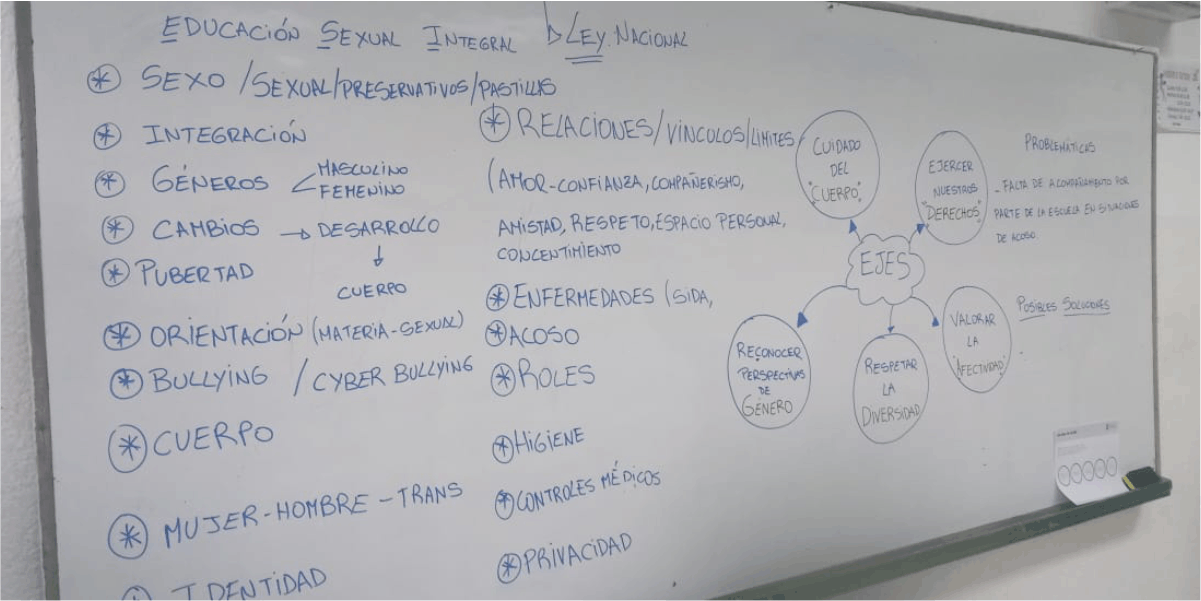 EDUCACIÓN SEXUAL INTEGRAL LEY NACIONAL
* SEXO / SEXUAL/PRESERVATIVOS/PASTILLAS
* INTEGRACIÓN
* GÉNEROS < MASCULINO
FEMENINO
* CAMBIOS → DESARROLLO
↓
CUERPO
* PUBERTAD
* ORIENTACIÓN (MATERIA-SEXUAL)
* BULLYING / CYBER BULLYING
* CUERPO
* MUJER-HOMBRE-TRANS
* IDENTIDAD
* RELACIONES/VÍNCULOS/LIMITES
(AMOR-CONFIANZA, COMPAÑERISMO,
AMISTAD, RESPETO, ESPACIO PERSONAL,
CONCENTIMIENTO
* ENFERMEDADES (SIDA,
* ACOSO
* ROLES
* HIGIENE
* CONTROLES MÉDICOS
* PRIVACIDAD
CUIDADO
DEL
"CUERPO"
EJERCER
NUESTROS
"DERECHOS"
EJES
RECONOCER
PERSPECTIVAS
DE
GÉNERO
RESPETAR
LA
DIVERSIDAD
VALORAR
LA
"AFECTIVIDAD"
PROBLEMÁTICAS
- FALTA DE ACOMPAÑAMIENTO POR
PARTE DE LA ESCUELA EN SITUACIONES
DE ACOSO.
POSIBLES SOLUCIONES